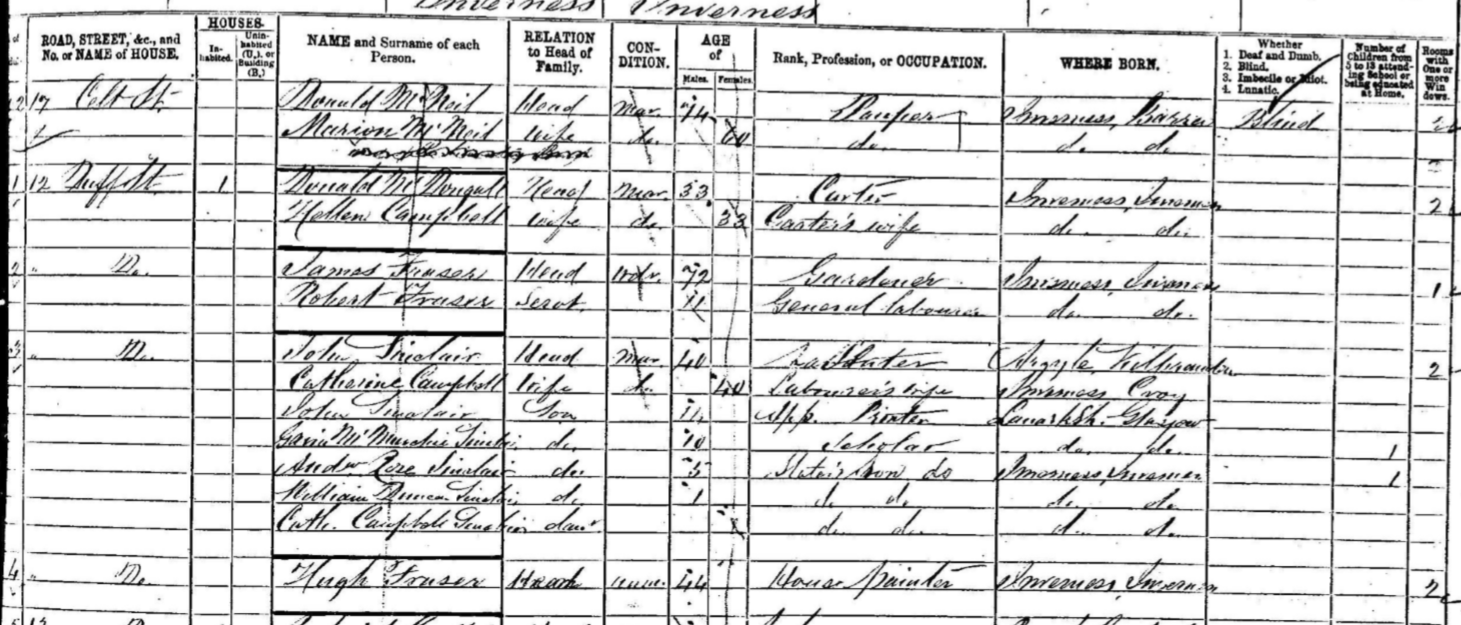 Inverness Inverness
ROAD, STREET, &c., and No. or NAME of HOUSE. HOUSES. Inhabited. Uninhabited (U.), or Building (B.) NAME and Surname of each Person. RELATION to Head of Family. CONDITION. AGE of Males. Females. Rank, Profession, or OCCUPATION. WHERE BORN. Whether 1. Deaf and Dumb. 2. Blind. 3. Imbecile or Idiot. 4. Lunatic. Number of Children from 5 to 13 attending School or being educated at Home. Rooms with One or more Windows.
17 Celt St. Donald McNeil Head Mar. 74 Pauper Inverness, Barra Blind
Marion McNeil Wife do. 60 do. do. do.
1 12 Duff St 1 Donald McDougall Head Mar. 33 Carter Inverness, Inverness 2
Hellen Campbell Wife do. 33 Carter's wife do. do.
2 " Do. James Fraser Head Wdr. 72 Gardener Inverness, Inverness 1
Robert Fraser Servt. General labourer do. do.
3 " Do. John Sinclair Head Mar. 40 Argyle, 2
Catherine Campbell Wife do. 40 Labourer's wife Inverness Croy
John Sinclair Son 14 App. Printer Lanarksh. Glasgow
Gavin McMurchie Sinclair do. 10 Scholar do. do. 1
Andw Rose Sinclair do. 5 do Inverness, Inverness 1
William Duncan Sinclair do. 1 do. do. do. do.
Cath. Campbell Sinclair daur do. do. do. do.
4 " Do. Hugh Fraser Head unm. 44 House painter Inverness, Inverness 2